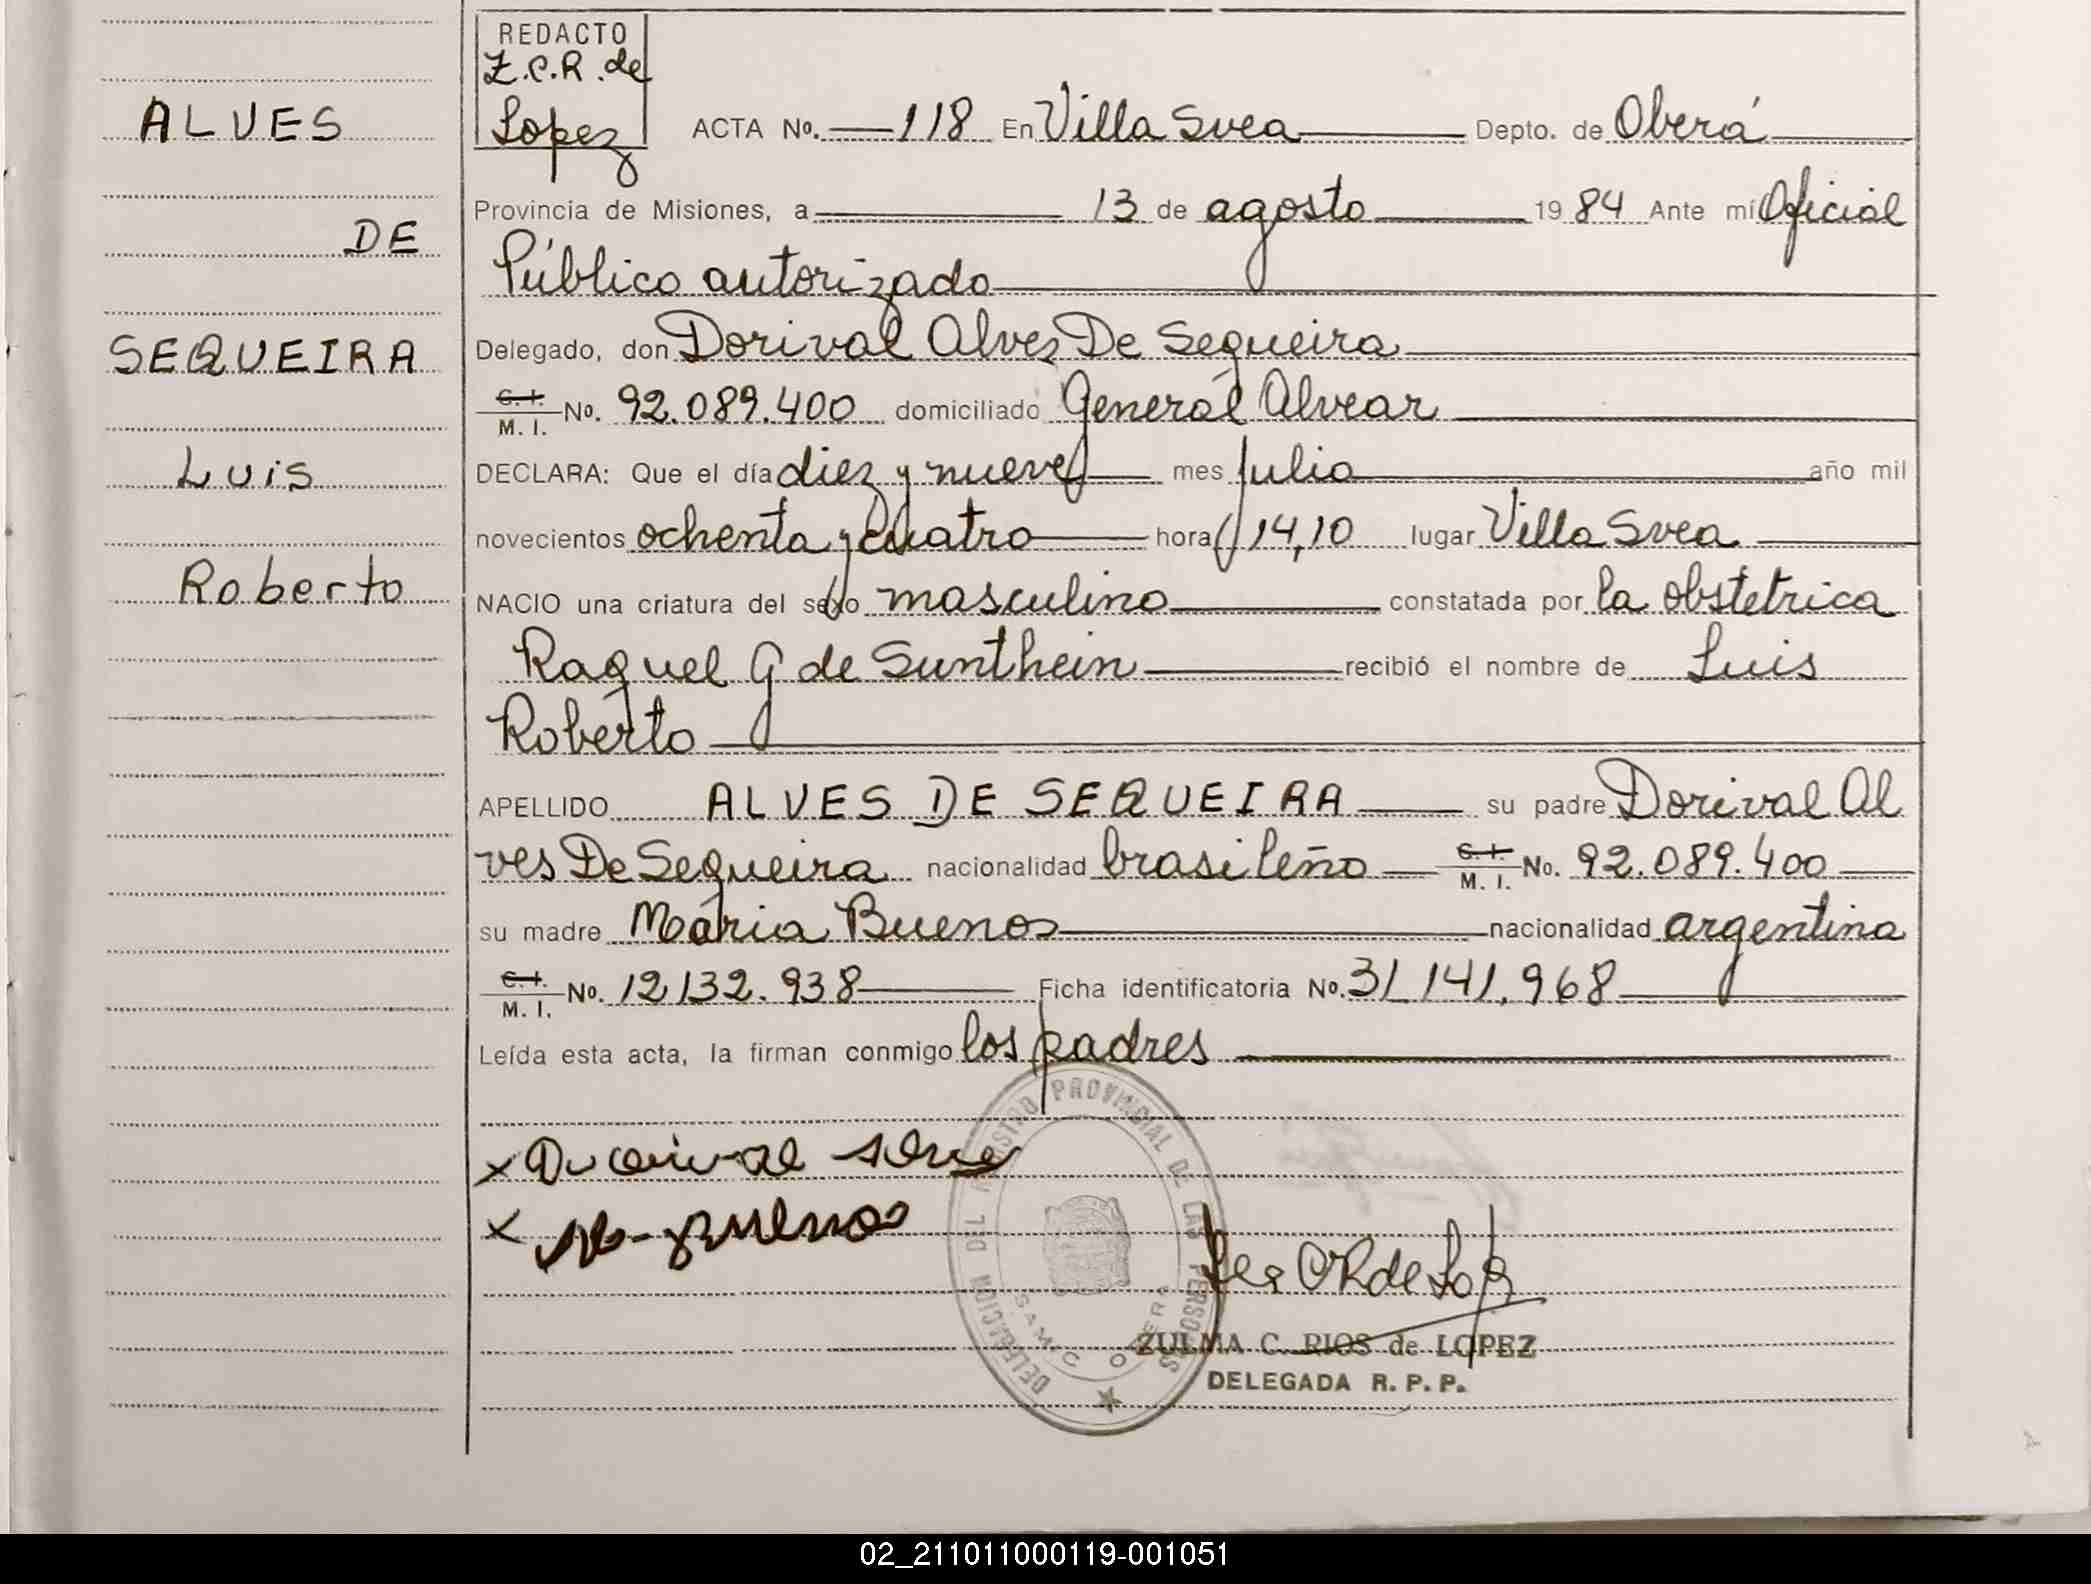 ALVES
DE
SEQUEIRA
Luis
Roberto
REDACTO
Z.C.R. de
Lopez
ACTA No. 118 En Villa Svea Depto. de Oberá
Provincia de Misiones, a 13 de agosto 1984 Ante mí Oficial
Público autorizado
Delegado, don Dorival Alves De Sequeira
C. I. / M. I. No. 92.089.400 domiciliado General Alvear
DECLARA: Que el día diez y nueve mes julio año mil
novecientos ochenta y cuatro hora 14,10 lugar Villa Svea
NACIO una criatura del sexo masculino constatada por la obstetrica
Raquel G de Sunthein recibió el nombre de Luis
Roberto
APELLIDO ALVES DE SEQUEIRA su padre Dorival Al
ves De Sequeira nacionalidad brasileño C. I. / M. I. No. 92.089.400
su madre Maria Buenos nacionalidad argentina
C. I. / M. I. No. 12132.938 Ficha identificatoria No. 31.141.968
Leída esta acta, la firman conmigo los padres
DELEGACION DEL REGISTRO PROVINCIAL DE LAS PERSONAS
SAMIC OBERA
ZULMA C. RIOS de LOPEZ
DELEGADA R. P. P.
02_211011000119-001051